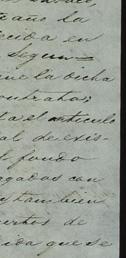 año la
cida en
Segun
que la dicha
contratos;
el artículo
al de exis-
t fondo
agados con
y tambien
uertos de
ida que se